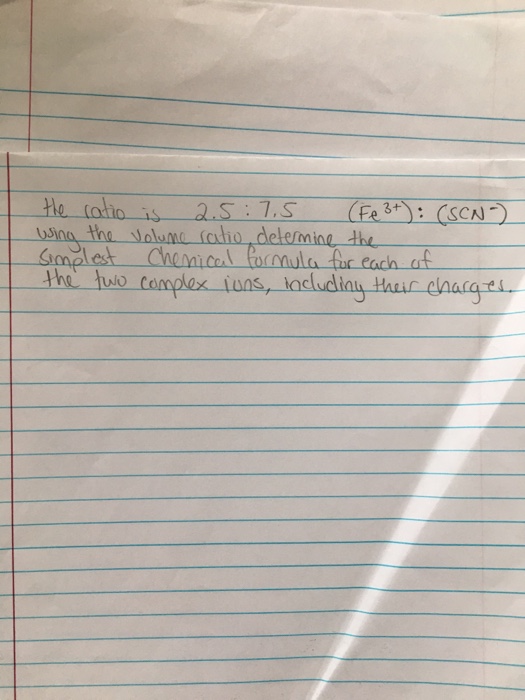 the ratio is 2.5 : 7.5 (Fe³⁺) : (SCN⁻)
using the volume ratio, determine the
Simplest Chemical formula for each of
the two complex ions, including their charges.